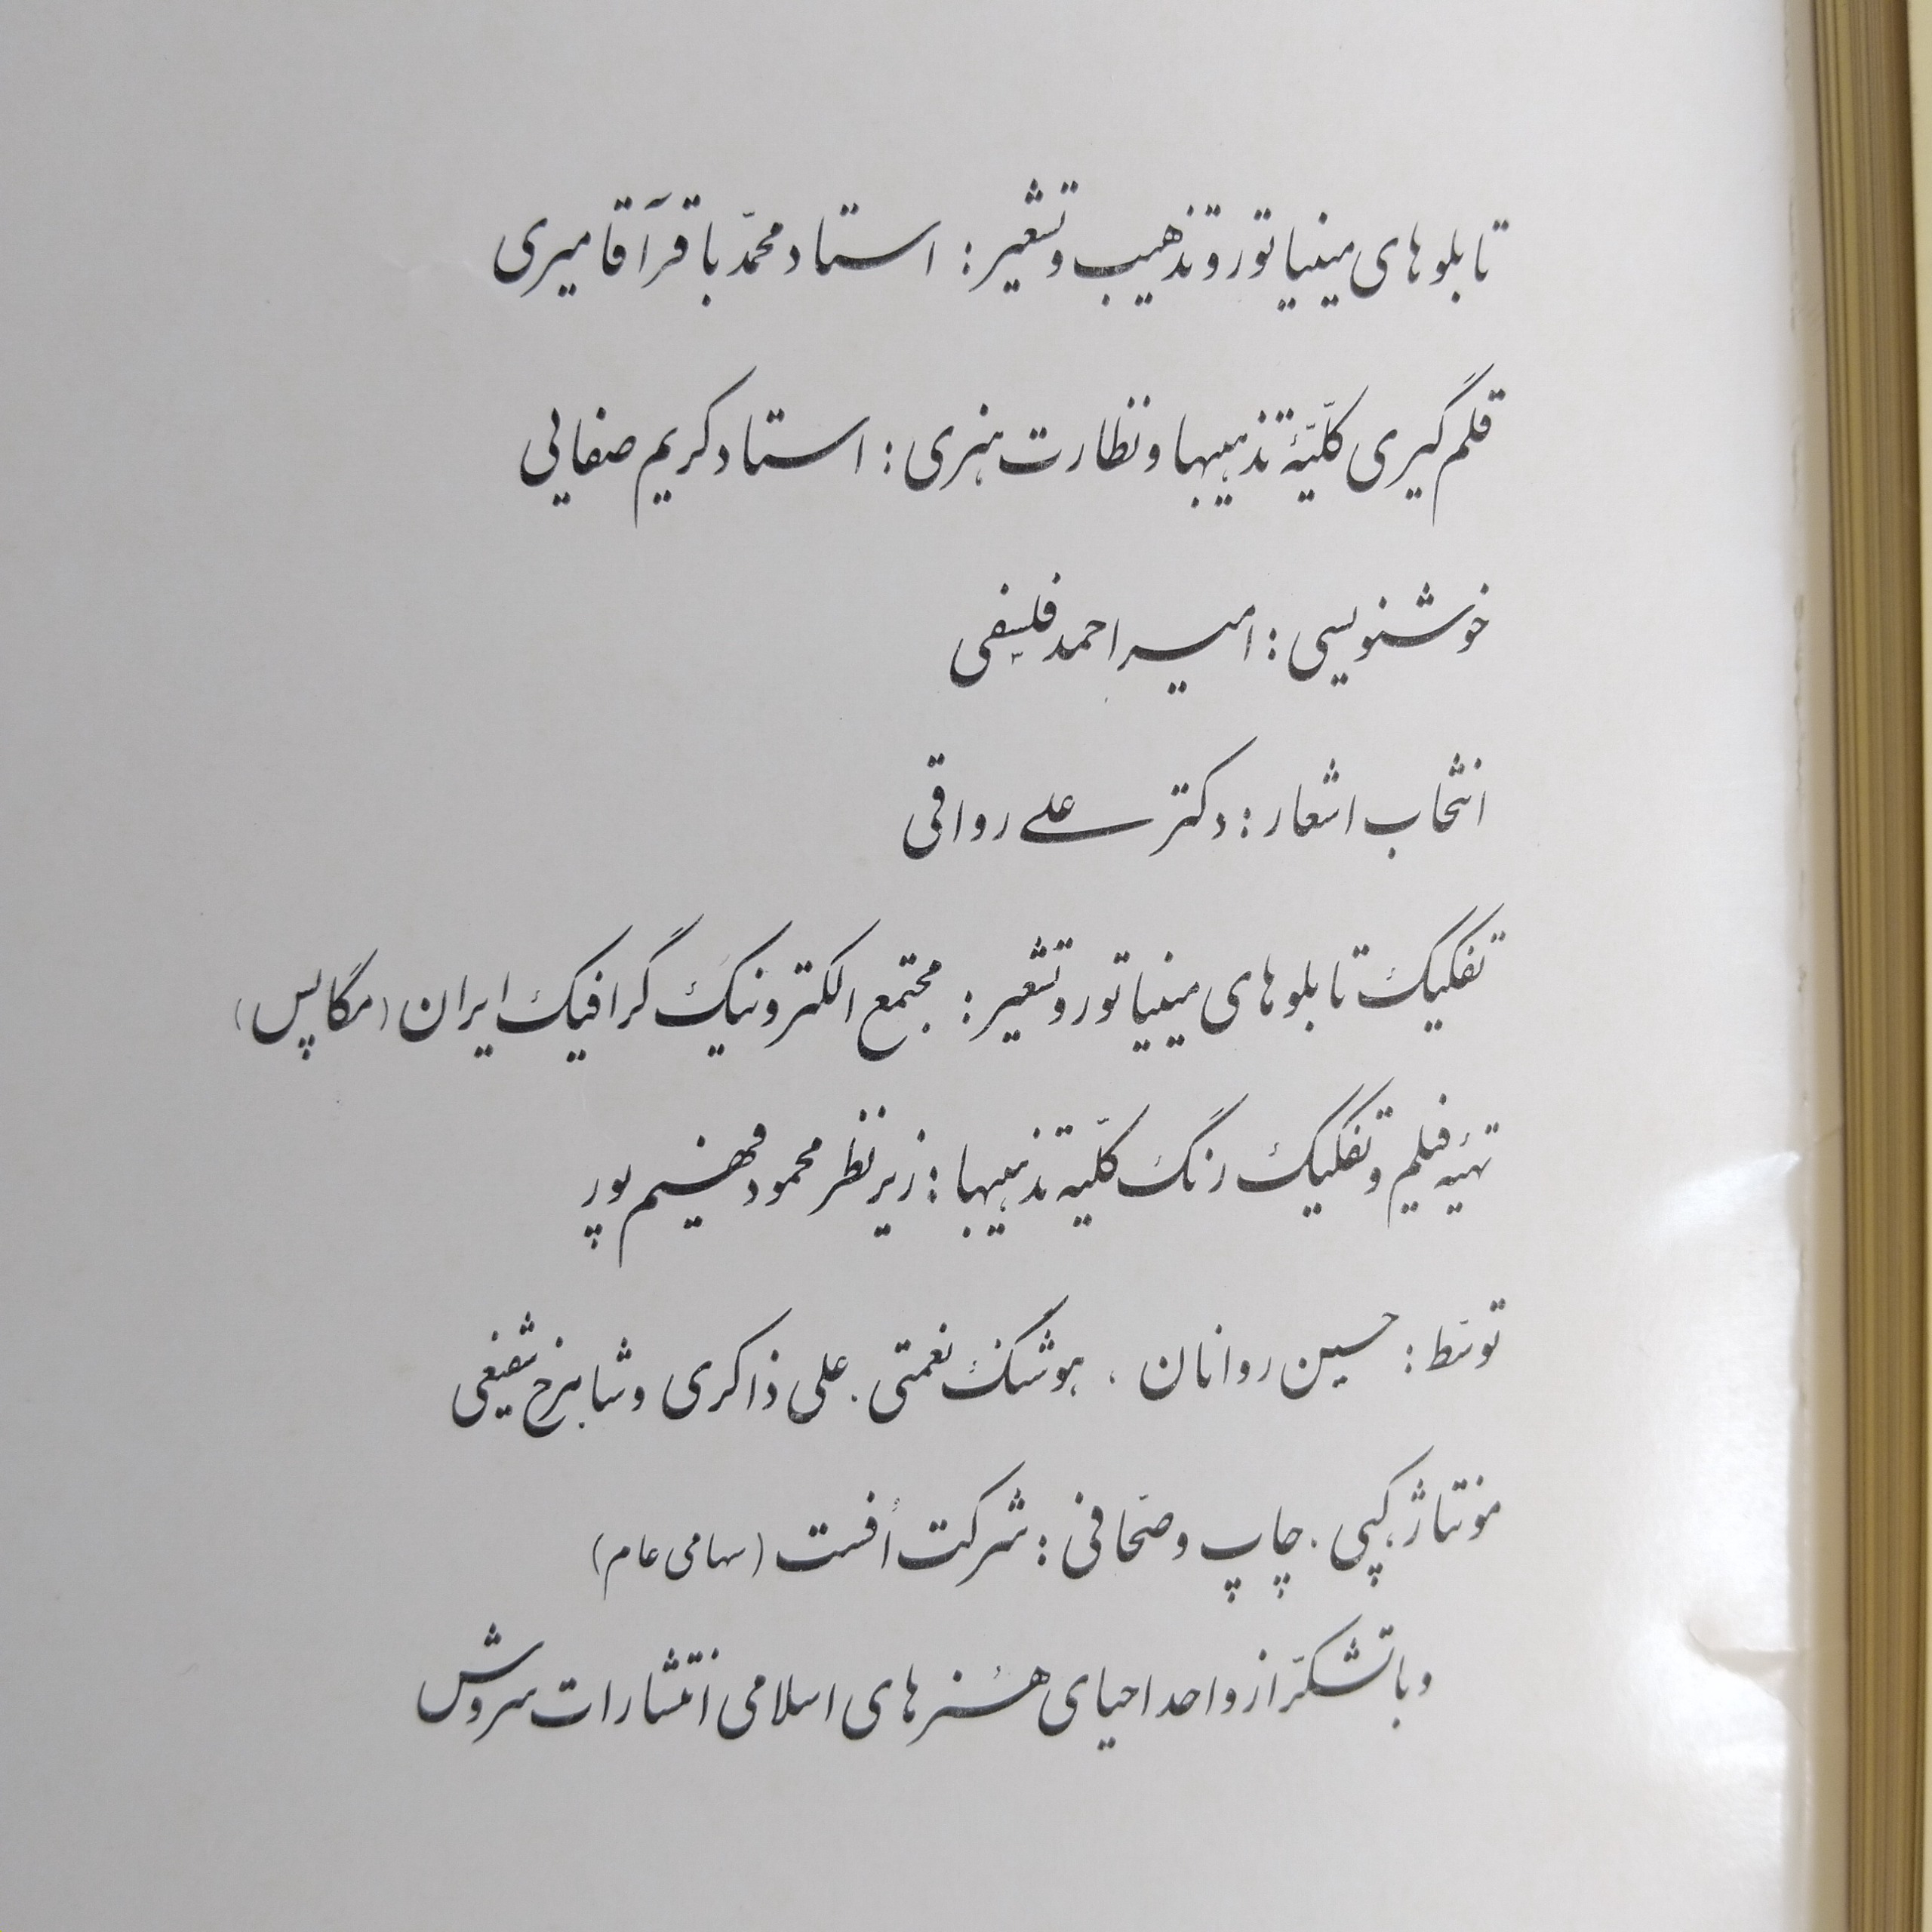 تابلوهای مینیاتور و تذهیب و تشعیر : استاد محمّد باقر آقامیری
قلم‌گیری کلّیّهٔ تذهیبها و نظارت هنری : استاد کریم صفائی
خوشنویسی : امیر احمد فلسفی
انتخاب اشعار : دکتر علی رواقی
تفکیک تابلوهای مینیاتور و تشعیر : مجتمع الکترونیک گرافیک ایران (مگاپس)
تهیّهٔ فیلم و تفکیک رنگ کلّیّه تذهیبها : زیر نظر محمود فهیم پور
توسّط : حسین روانان ، هوشنگ نعمتی . علی ذاکری و شاهرخ شفیعی
مونتاژ ، کپی . چاپ و صحّافی : شرکت اُفست (سهامی عام)
و با تشکّر از واحد احیای هنرهای اسلامی انتشارات سروش